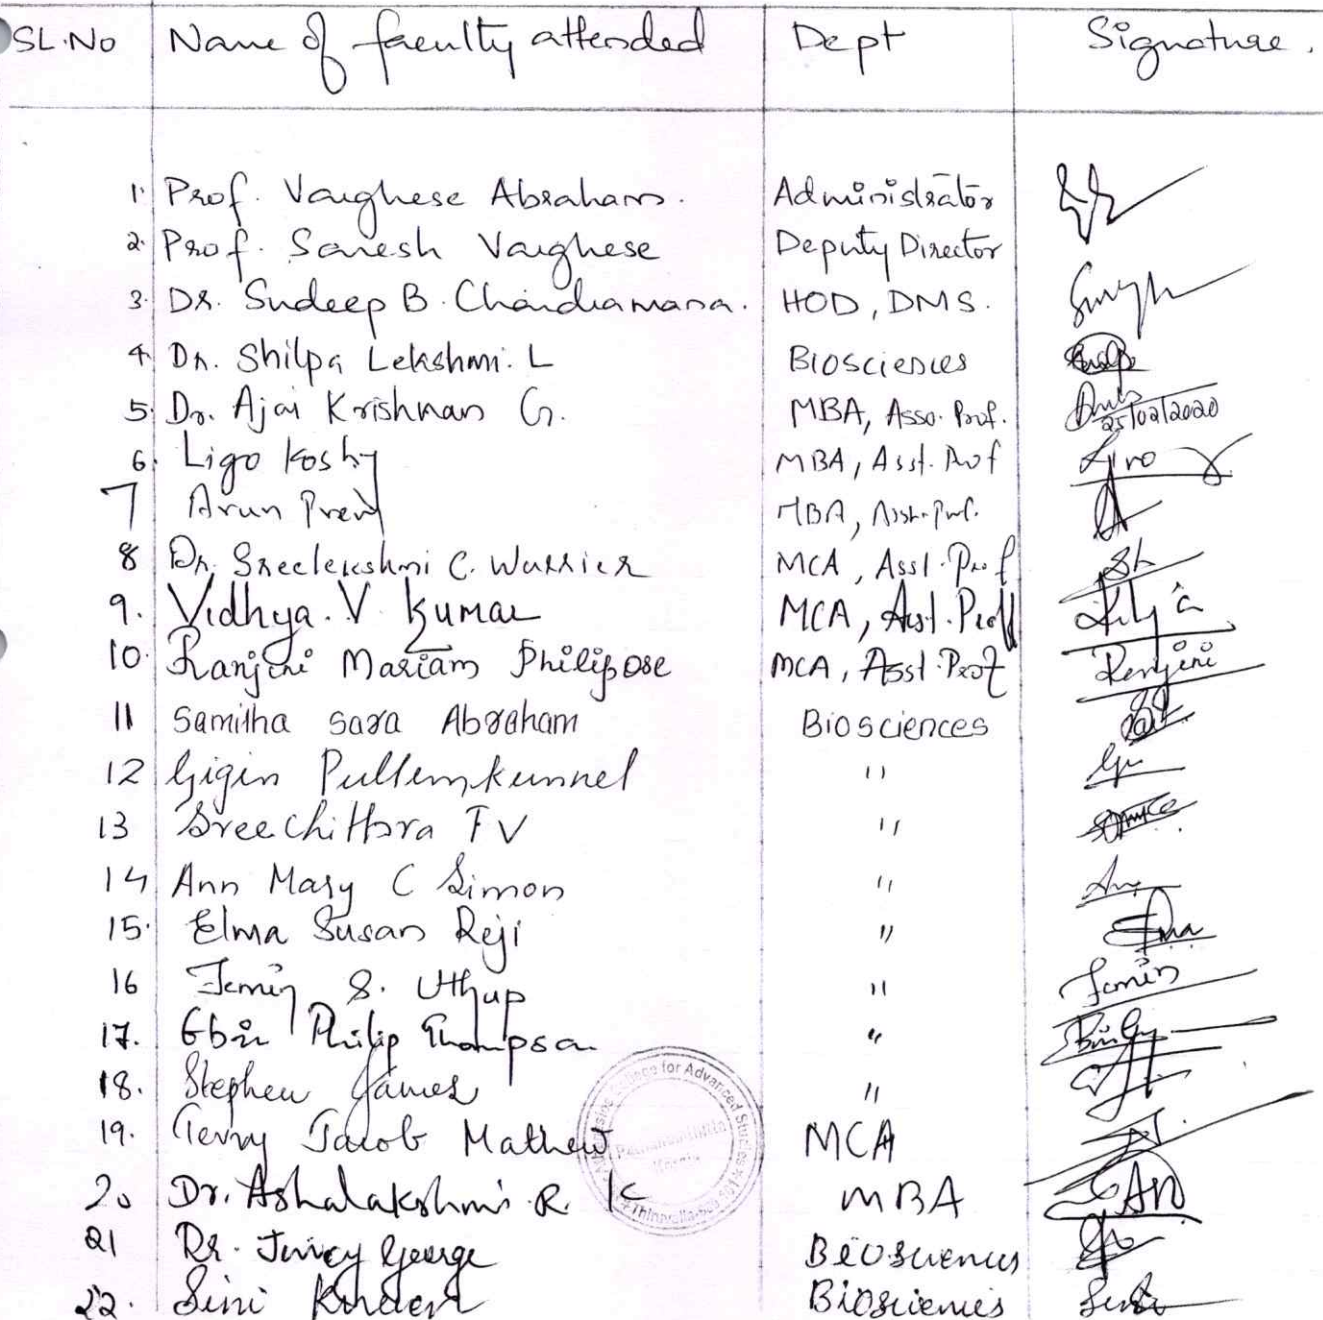 SL.No Name of faculty attended Dept Signature.
1. Prof. Varghese Abraham. Administrator
2. Prof. Sanesh Varghese Deputy Director
3. Dr. Sudeep B. Chandramana. HOD, DMS.
4. Dr. Shilpa Lekshmi. L Biosciences
5. Dr. Ajai Krishnan G. MBA, Asso. Prof. 25/02/2020
6. Ligo Koshy MBA, Asst. Prof
7 Arun Prem MBA, Asst. Prof.
8 Dr. Sreelekshmi C. Warrier MCA, Asst. Prof
9. Vidhya. V Kumar MCA, Asst. Prof
10. Ranjini Mariam Philipose MCA, Asst. Prof Renjini
11 Samitha Sara Abraham Biosciences
12 Gigin Pullemkunnel "
13 Sreechithra T V "
14 Ann Mary C Simon "
15. Elma Susan Reji " Elma
16 Jemin S. Uthup " Jemin
17. Ebin Philip Thampson "
18. Stephen James "
19. Terry Jacob Mathew MCA
20 Dr. Ashalakshmi. R. K MBA
21 Dr. Jency George Biosciences
22. Sini Biosciences
College for Advanced Studies
Pathanamthitta
Kerala